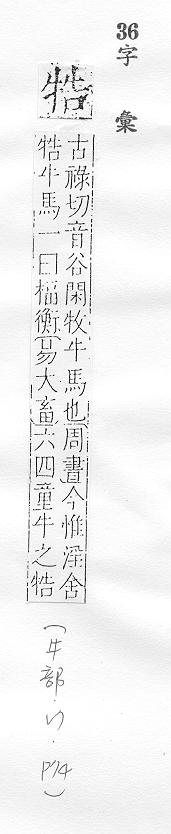 36字彙
牿
古祿切音谷閑牧牛馬也周書今惟淫舍
牿牛馬一曰楅衡易大畜六四童牛之牿
(牛部·
P74)